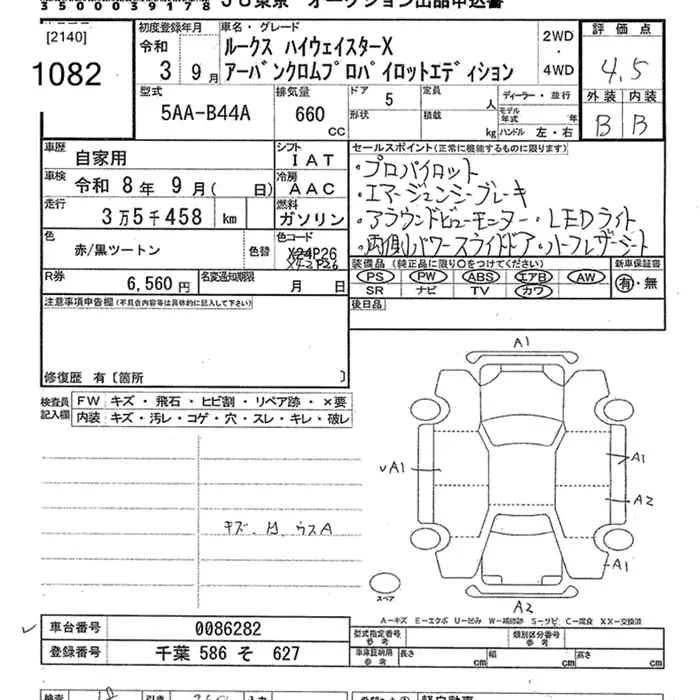 35000039178 JU東京 オークション出品申込書
[2140]
1082
初度登録年月
令和
3 9月
車名・グレード
ルークス ハイウェイスターX
アーバンクロムプロパイロットエディション
2WD
・
4WD
評価点
4.5
外装 内装
B B
型式
5AA-B44A
排気量
660
CC
ドア
5
形状
定員
人
積載
kg
ディーラー・並行
モデル年式 年
ハンドル 左・右
車歴
自家用
シフト
IAT
車検
令和 8年 9月( 日)
冷房
AAC
走行
3万5千458 km
燃料
ガソリン
色
赤/黒ツートン
色替
色コード
X24P26
X42P26
R券
6,560 円
名変通知期限
月 日
セールスポイント(正常に機能するものに限ります)
・プロパイロット
・エマージェンシーブレーキ
・アラウンドビューモニター・LEDライト
・両側パワースライドドア・ハーフレザーシート
装備品(純正品に限り○をつけてください)
PS PW ABS エアB AW
SR ナビ TV カワ
新車保証書
有・無
後日品
注意事項申告欄(不具合内容等は具体的に記入して下さい)
修復歴 有〔箇所 〕
検査員
記入欄
FW キズ・飛石・ヒビ割・リペア跡・×要
内装 キズ・汚レ・コゲ・穴・スレ・キレ・破レ
A1
A1
A1
A2
A1
A2
スペア
A-キズ E-エクボ U-凹み W-補修跡 S-サビ C-腐食 XX-交換済
車台番号 0086282
登録番号 千葉 586 そ 627
型式指定番号
参考
類別区分番号
参考
車庫証明用
参考
長さ cm 幅 cm 高さ cm